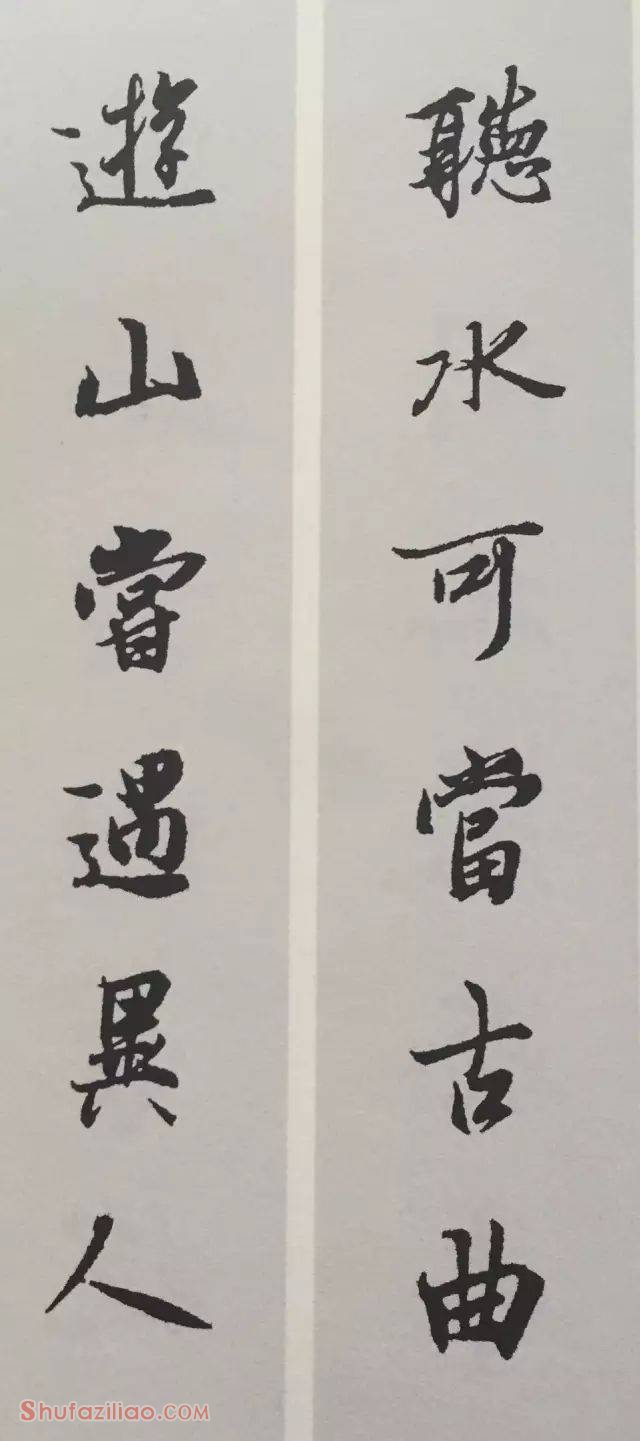 聽水可當古曲
遊山嘗遇異人
Shufaziliao.COM